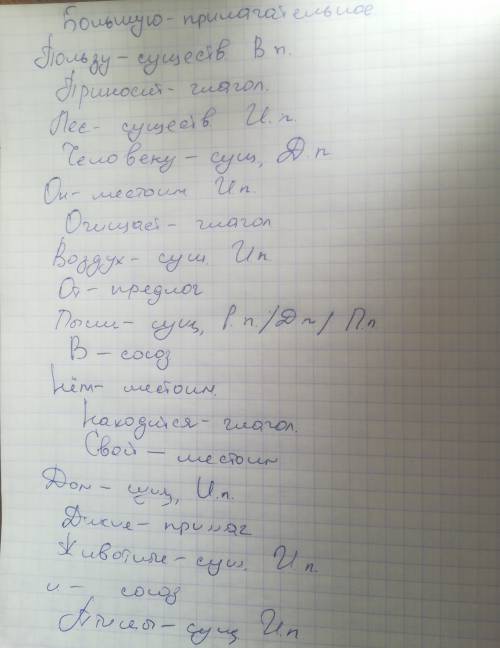 Большую - прилагательное
Пользу - существ. В п.
Приносит - глагол.
Лес - существ. И. п.
Человеку - сущ, Д. п
Он - местоим И п.
Очищает - глагол
Воздух - сущ. И п
От - предлог
Пыли - сущ, Р. п. / Д п / П п
В - союз
Нём - местоим.
Находится - глагол.
Свой - местоим
Дом - сущ, И. п.
Дикие - прилаг
Животные - сущ. И п.
и - союз
Птицы - сущ И. п